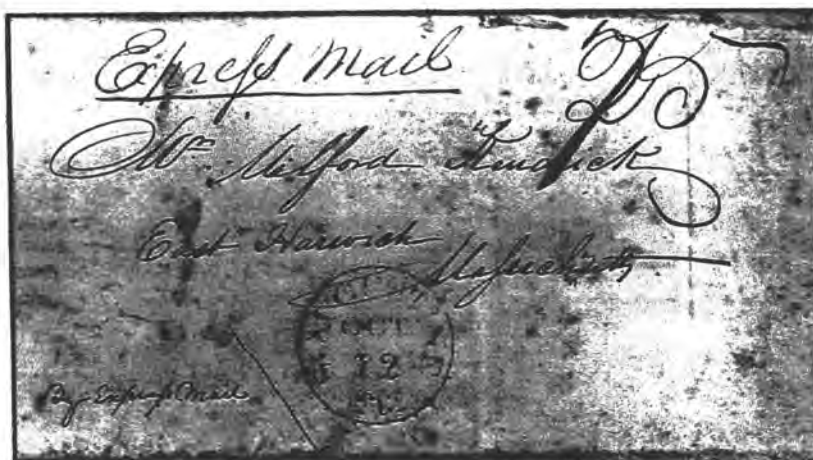 Express Mail
25
Mr. Milford Kendrick
East Harwich
Massachusetts
OCT
12
By Express Mail